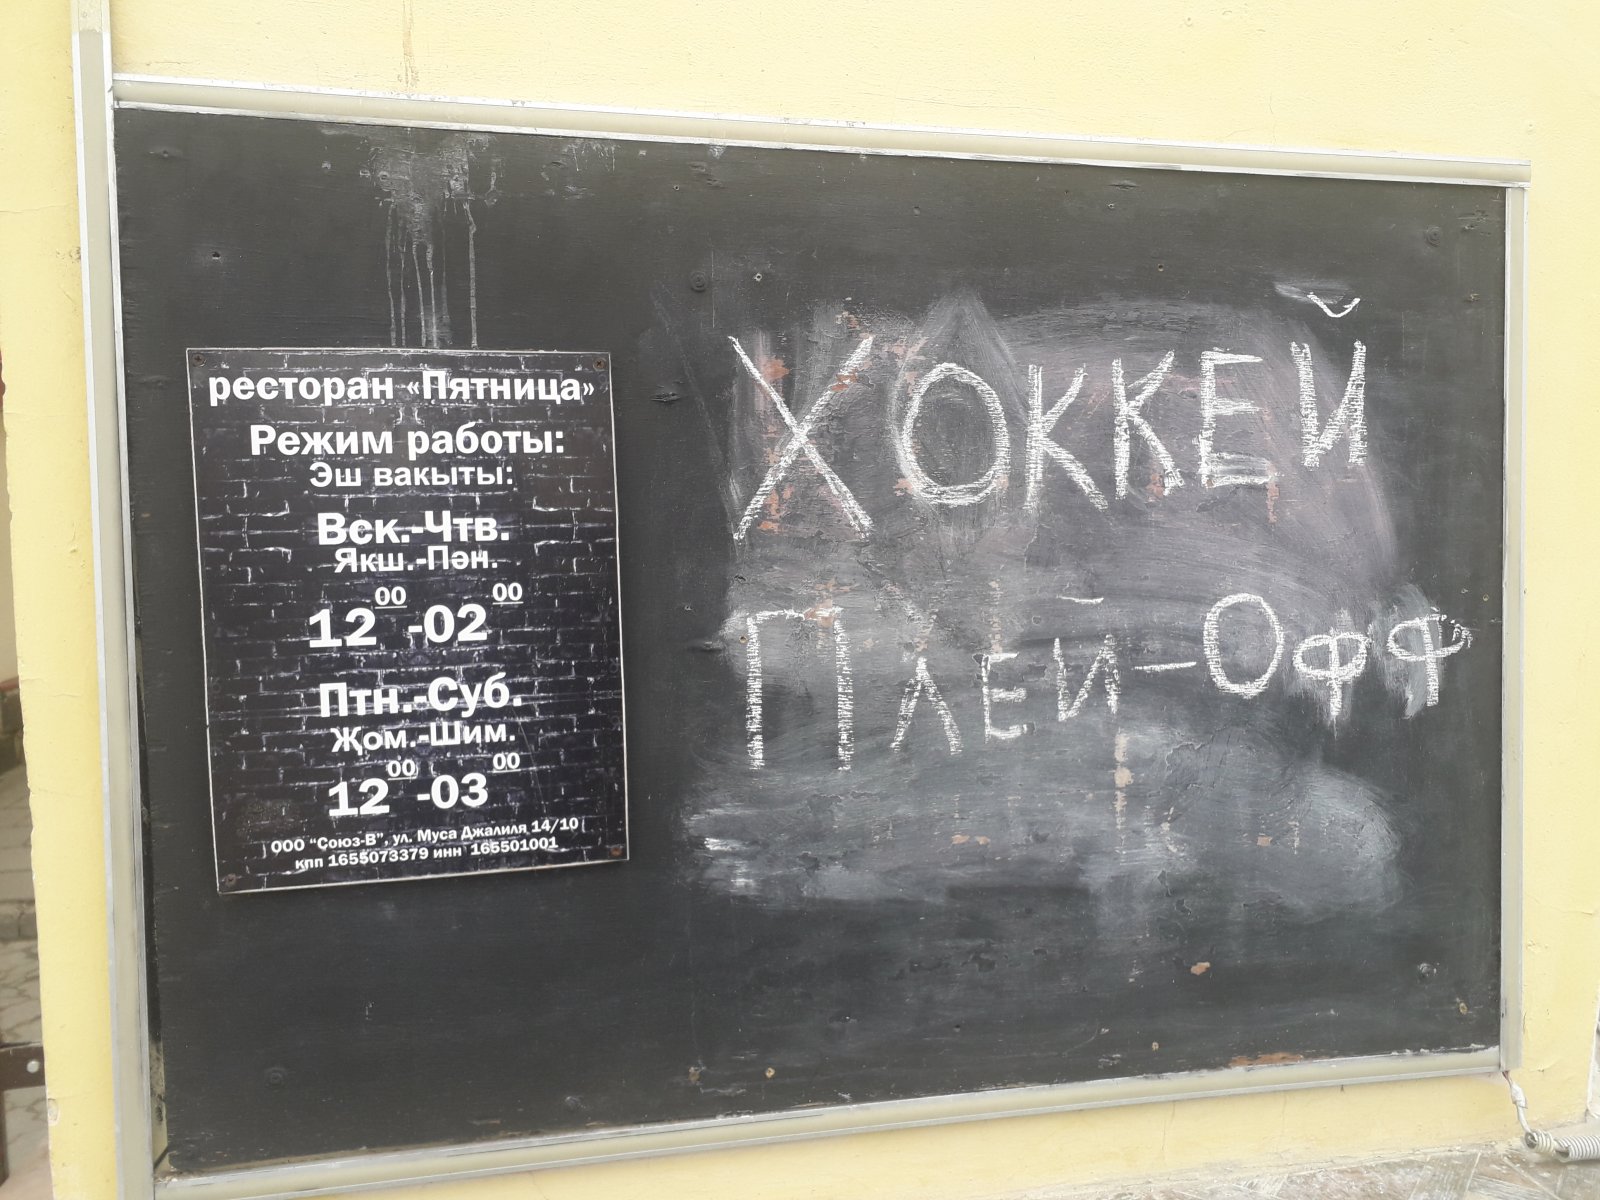 ресторан «Пятница»
Режим работы:
Эш вакыты:
Вск.-Чтв.
Якш.-Пән.
12⁰⁰-02⁰⁰
Птн.-Суб.
Җом.-Шим.
12⁰⁰-03⁰⁰
ООО "Союз-В", ул. Муса Джалиля 14/10
кпп 1655073379 инн 165501001
ХОККЕЙ
ПЛЕЙ-Офф